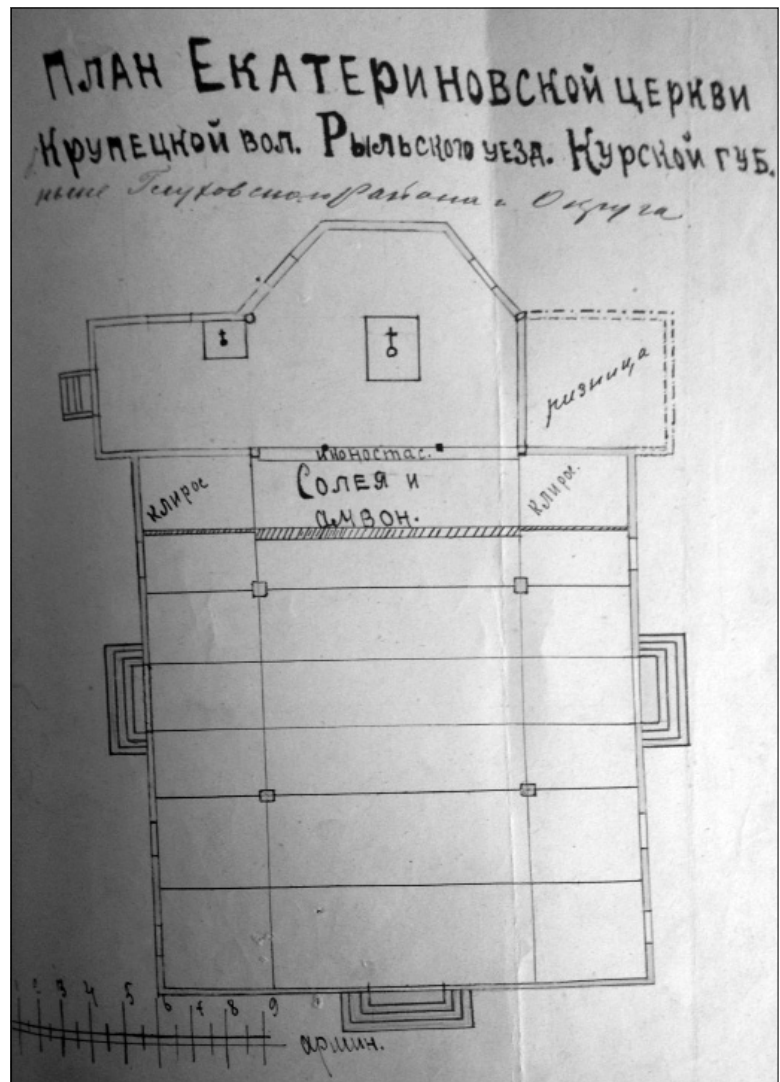 План Екатериновской церкви
Крупецкой вол. Рыльского уезд. Курской губ.
ныне Глуховского района и Округа
ризница
иконостас.
Солея и
амвон.
клирос
клирос.
1 2 3 4 5 6 7 8 9
аршин.